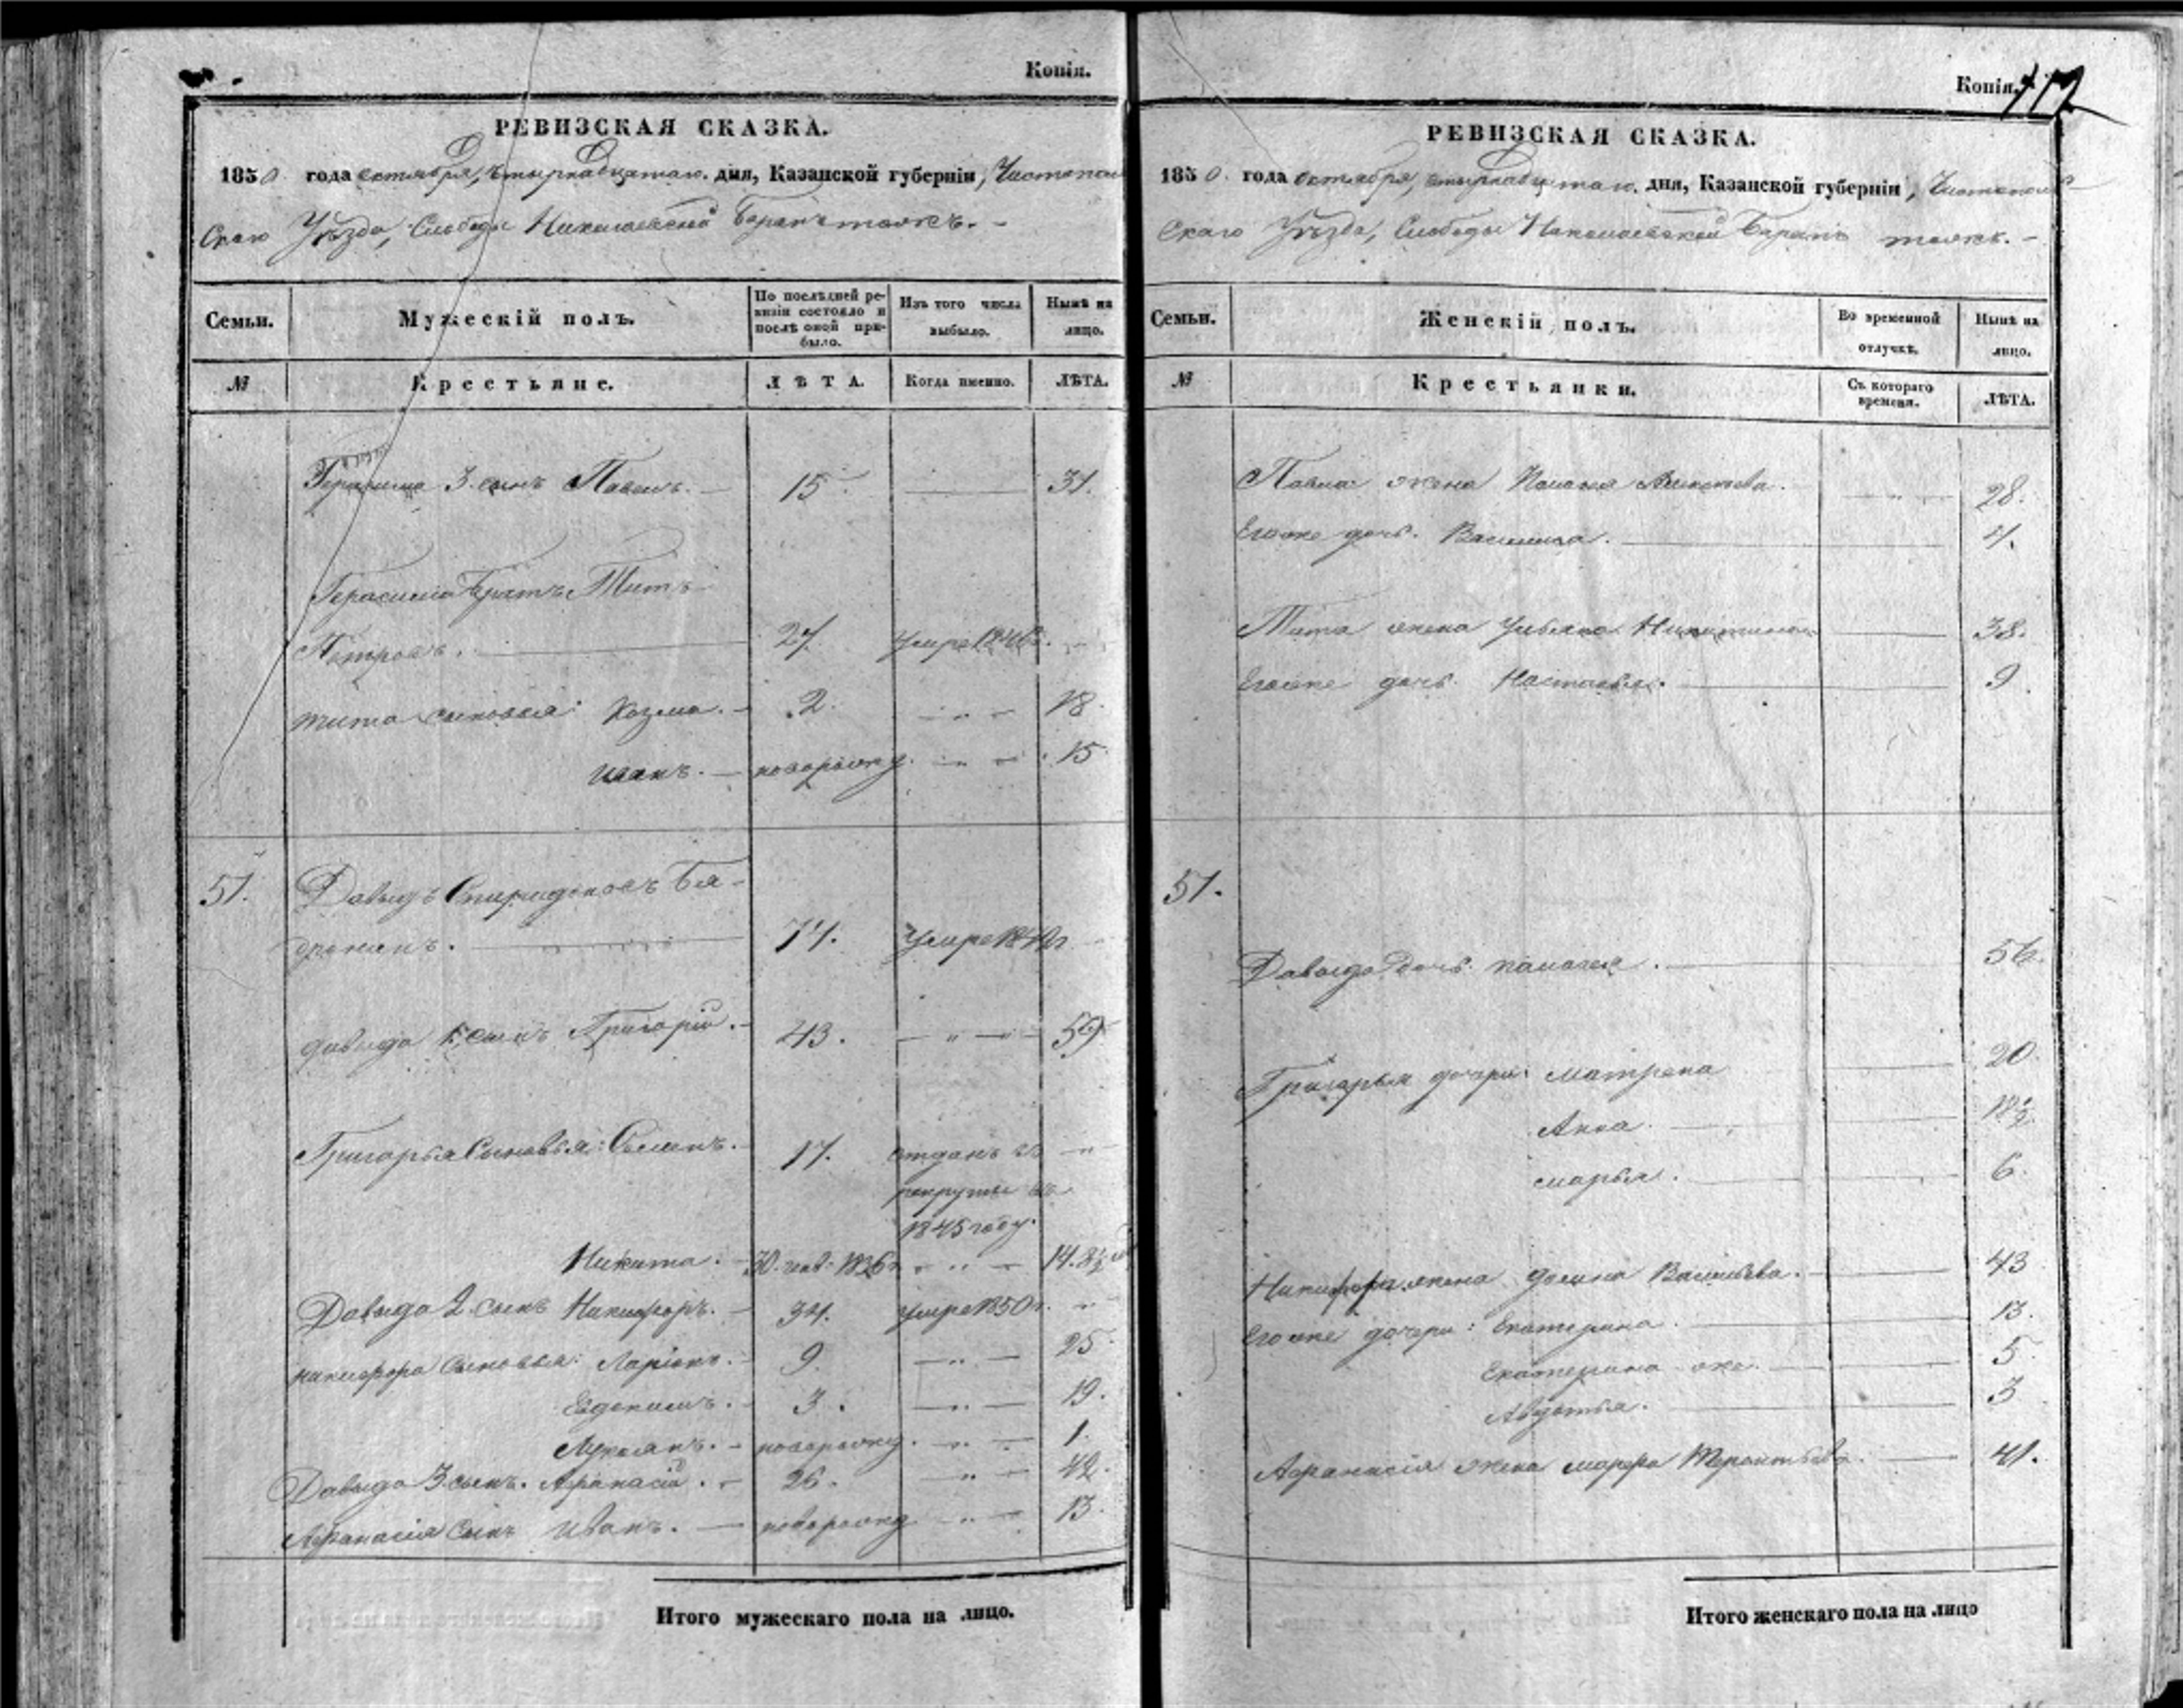 Копія.
РЕВИЗСКАЯ СКАЗКА.
1850 года октября, четырнадцатаго дня, Казанской губерніи, Чистополь
скаго Уѣзда, Слободы Николаевской Баранъ тожъ.
Семьи. Мужескій полъ. По послѣдней ревизіи состояло и послѣ оной прибыло. Изъ того числа выбыло. Нынѣ на лицо.
№ Крестьяне. ЛѢТА. Когда именно. ЛѢТА.
Герасима 3. сынъ Павелъ. 15. 31.
Герасима братъ Титъ
Петровъ. 27. умре 1846
Тита сыновья: Козма. 2. 18.
Иванъ. новорожд. 15
51. Давыдъ Спиридоновъ
74. умре
Давыда 1. сынъ Григорій. 43. 59
Григорья Сыновья: 17. отданъ въ
рекруты въ
1845 году.
Никита. 14.
Давыда 2. сынъ Никифоръ. 34. умре 1850 г.
Никифора Сыновья: Ларіонъ. 9. 25
Евдокимъ. 3. 19.
новорожд. 1.
Давыда 3. сынъ. Афанасій. 26. 42.
Афанасія Сынъ Иванъ. новорожд. 13.
Итого мужескаго пола на лицо.
Копія. 112
РЕВИЗСКАЯ СКАЗКА.
1850. года октября, четырнадцатаго дня, Казанской губерніи, Чистополь
скаго Уѣзда, Слободы Николаевской Баранъ тожъ.
Семьи. Женскій полъ. Во временной отлучкѣ. Нынѣ на лицо.
№ Крестьянки. Съ котораго времени. ЛѢТА.
Павла жена 28.
Его же дочь. Василиса. 4.
Тита жена Ульяна Никитина 38.
Его же дочь. Настасья. 9.
51.
Давыда дочь 56.
Григорья дочери: Матрена 20.
Анна.
Марья. 6.
Никифора жена Васильева. 43
Его же дочери: Екатерина. 13.
Екатерина же. 5
Авдотья. 3
Афанасія жена Марфа Терентьева. 41.
Итого женскаго пола на лицо